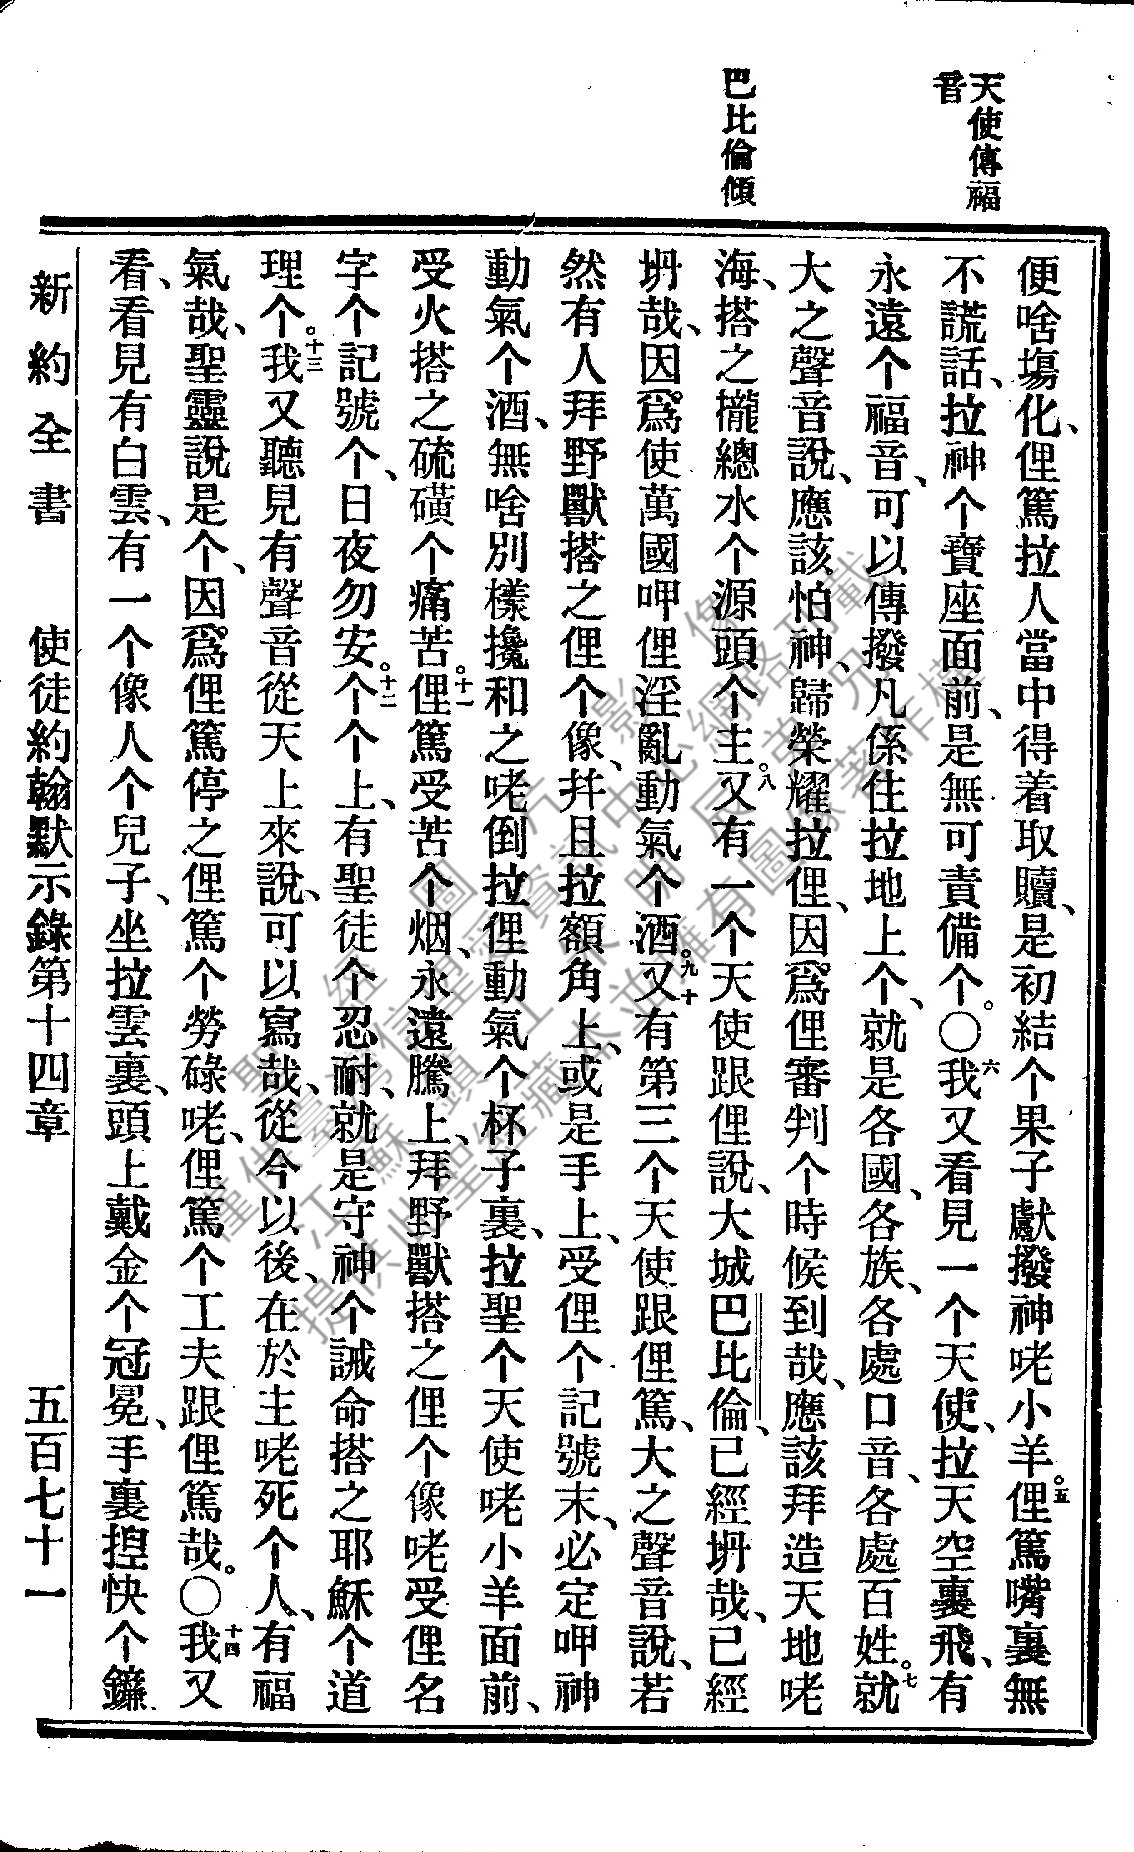 天使傳福
音
巴比倫傾
便啥塲化、俚篤拉人當中得着取贖、是初結个果子獻撥神咾小羊。五俚篤嘴裏無
不謊話、拉神个寶座面前、是無可責備个。〇六我又看見一个天使、拉天空裏飛、有
永遠个福音、可以傳撥凡係住拉地上个、就是各國、各族、各處口音、各處百姓。七就
大之聲音說、應該怕神、歸榮耀拉俚、因爲俚審判个時候到哉、應該拜造天地咾
海、搭之攏總水个源頭个主。八又有一个天使跟俚說、大城巴比倫、已經坍哉、已經
坍哉、因爲使萬國呷俚淫亂動氣个酒。九十又有第三个天使跟俚篤、大之聲音說、若
然有人拜野獸搭之俚个像、幷且拉額角上、或是手上、受俚个記號末、必定呷神
動氣个酒、無啥別樣攙和之咾倒拉俚動氣个杯子裏、拉聖个天使咾小羊面前、
受火搭之硫磺个痛苦。十一俚篤受苦个烟、永遠騰上、拜野獸搭之俚个像咾受俚名
字个記號个、日夜勿安。十二个个上、有聖徒个忍耐、就是守神个誡命搭之耶穌个道
理个。十三我又聽見有聲音從天上來說、可以寫哉、從今以後、在於主咾死个人、有福
氣哉、聖靈說是个、因爲俚篤停之俚篤个勞碌咾、俚篤个工夫跟俚篤哉。〇十四我又
看、看看見有白雲、有一个像人个兒子、坐拉雲裏、頭上戴金个冠冕、手裏揑快个鐮
新約全書　使徒約翰默示錄第十四章　五百七十一